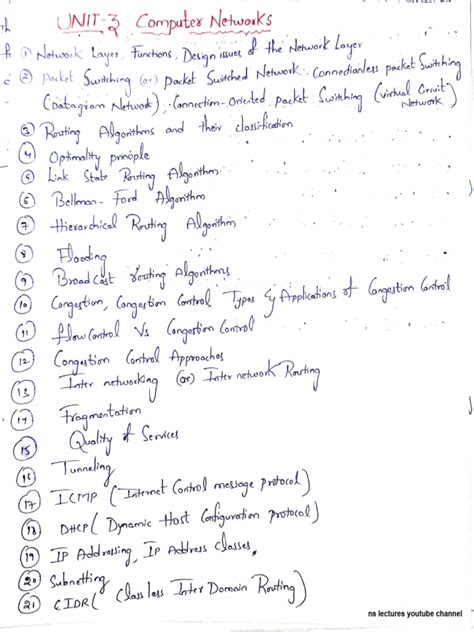 UNIT-3 Computer Networks
① Network Layer Functions, Design issues of the Network Layer
② Packet Switching (or) Packet Switched Network. Connectionless packet Switching
(Datagram Network), Connection-Oriented packet Switching (virtual Circuit Network)
③ Routing Algorithms and their classification
④ Optimality principle
⑤ Link State Routing Algorithm
⑥ Bellman-Ford Algorithm
⑦ Hierarchical Routing Algorithm
⑧ Flooding
⑨ BroadCast routing Algorithms
⑩ Congestion, Congestion Control Types & Applications of Congestion Control
⑪ flow Control Vs Congestion Control
⑫ Congestion Control Approaches
⑬ Inter networking (or) Inter network Routing
⑭ Fragmentation
⑮ Quality of Services
⑯ Tunneling
⑰ ICMP (Internet Control message protocol)
⑱ DHCP (Dynamic Host Configuration protocol)
⑲ IP Addressing, IP Address classes,
⑳ Subnetting
㉑ CIDR (Class less Inter Domain Routing)
ns lectures youtube channel